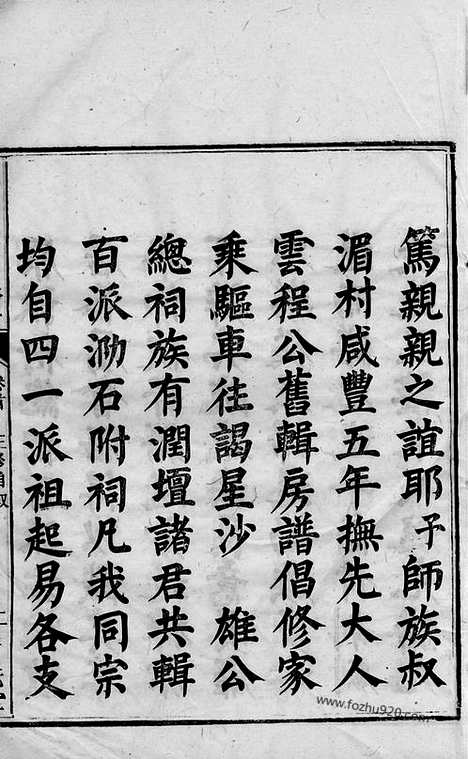 篤親親之誼耶予師族叔
湄村咸豐五年撫先大人
雲程公舊輯房譜倡修家
乘驅車往謁星沙　雄公
總祠族有潤壇諸君共輯
百派泐石附祠凡我同宗
均自四一派祖起易各支
www.fozhu920.com